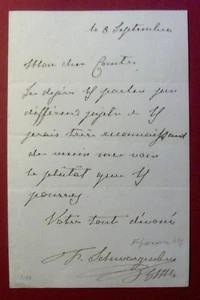 le 8 Septembre
Mon cher Comte
Je désire y parler sur
différend sujets et y
serais très reconnaissant
de venir me voir
le plutôt que y
pourrez
Votre tout dévoué
F. Schwarzenberg